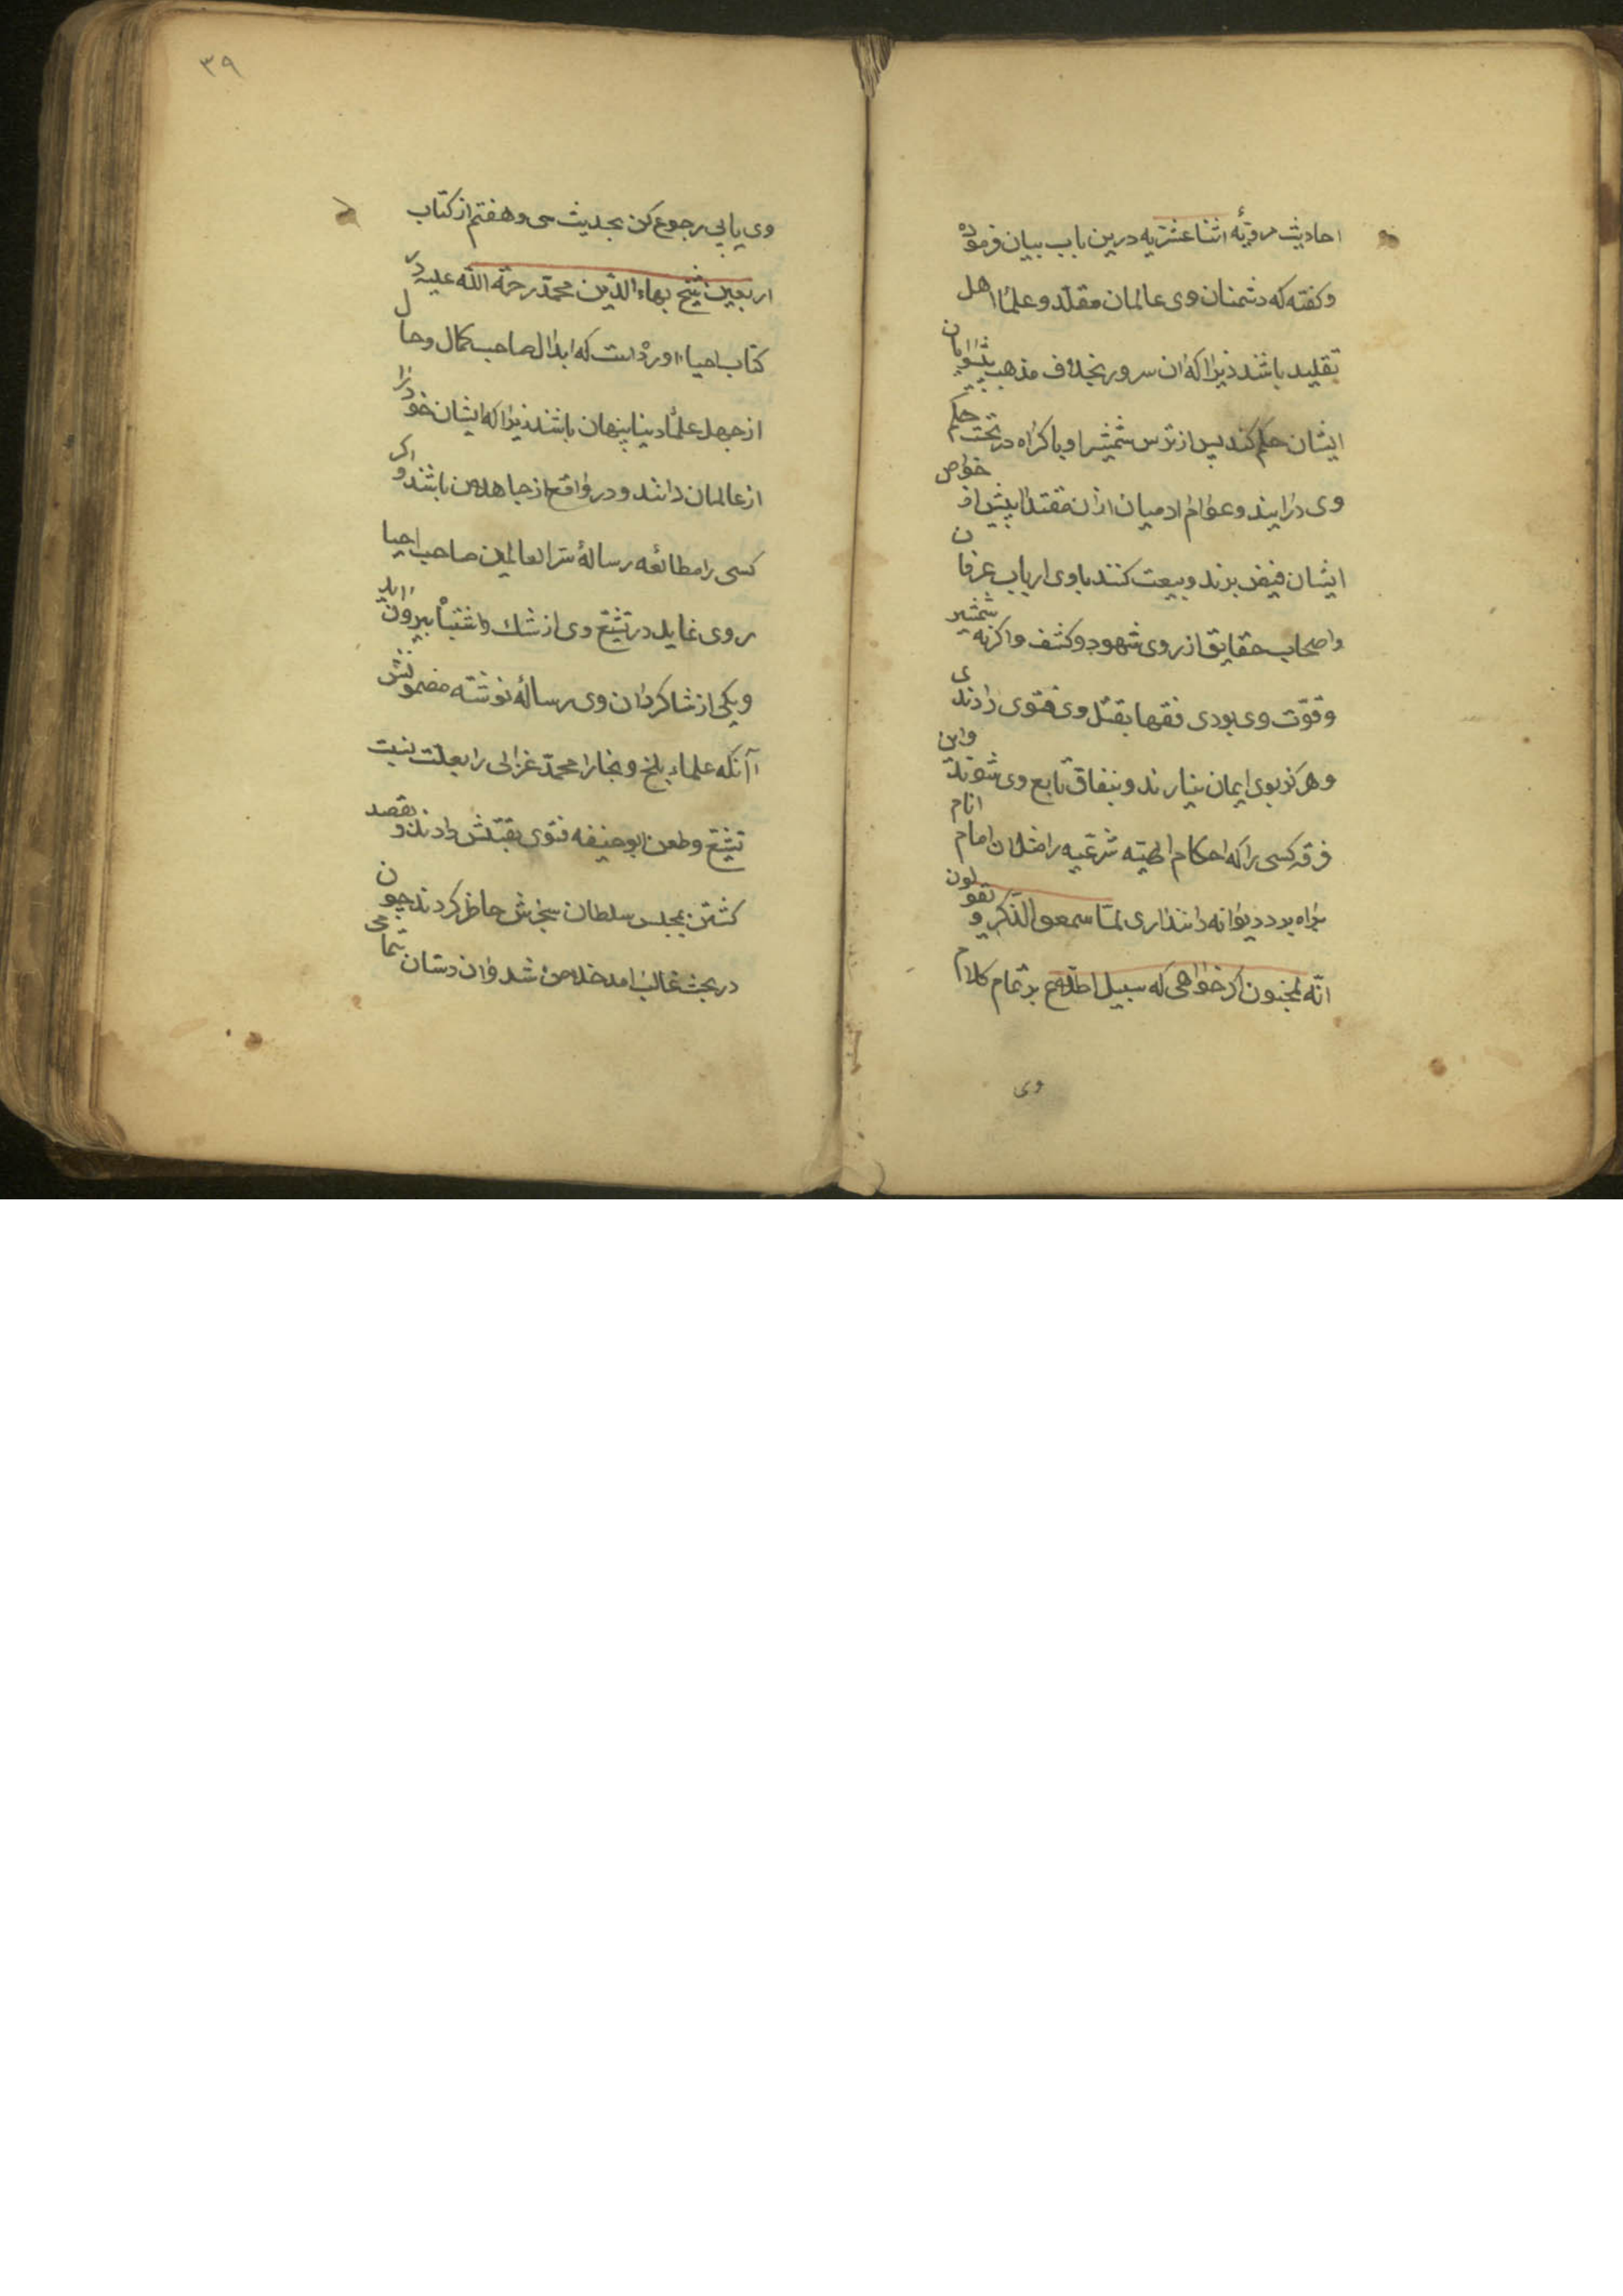 احادیث مرویّهٔ اثناعشریه درین باب بیان فرموده
و کفته که دشمنان وی عالمان مقلّد و علمٰا اهل
تقلید باشند زیرٰا که ان سرور بخلاف مذهب پیشوایان
ایشان حکم کند پس از ترس شمشیر او باکراه در تحت حکم
وی درٰایند و عوٰام ادمیان ازٰان مقتدٰا پیش از خوٰاص
ایشان فیض برند و بیعت کنند باوی ارباب عرفان
واصحاب حقایق از روی شهود و کشف و اکر نه شمشیر
و قوّت وی بودی فقها بقتل وی فتوی دٰادندی
و هرکز بوی ایمان نیارند و بنفاق تابع وی شوند واین
فرقه کسی را که احکام الهیّه شرعیه را ضلٰان امام انام
برٰاه برد دیوٰانه دٰانند اری لمّا سمعوا الذّکر و یقولون
انّه لمجنون اکر خوٰاهی که سبیل اطلاع بر تمام کلام
وی
۳۹
وی یابی رجوع کن بحدیث سی و هفتم از کتاب
اربعین شیخ بهاء الدّین محمّد رحمة الله علیه در
کتاب احیاء اوردٰه است که ابدٰال صاحب کمال و حال
از جهل علمٰا دنیا پنهان باشند زیرٰا که ایشان خود رٰا
از عالمان دٰانند و در وٰاقع از جاهلان باشند و اکر
کسی را مطالعه رسالهٔ سرّ العالمین صاحب احیا
روی نماید در تشیّع وی از شك و اشتبٰاه بیرون اید
و یکی از شاکردٰان وی رسالهٔ نوشته مضمونش
آنکه علماء بلخ و بخارا محمّد غزٰالی را بعلّت نسبت
تشیّع و طعن ابوحنیفه فتوی بقتلش دٰادند و بقصد
کشتن بمجلس سلطان سنجرش حاضر کردند چون
در بحث غالب امد خلاص شد وٰان دستان بتمامی